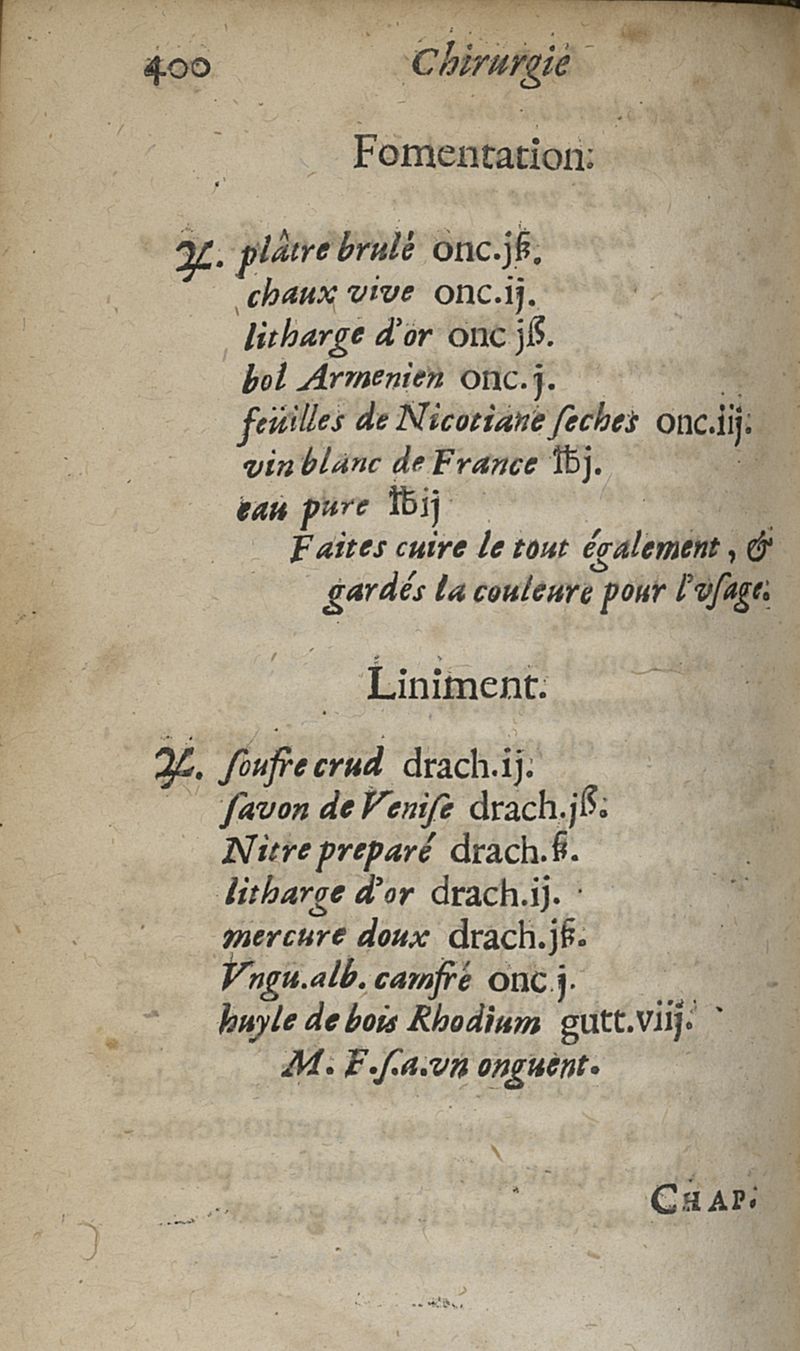 400 Chirurgie
Fomentation.
♃. plâtre brulé onc.jß.
chaux vive onc.ij.
litharge d'or onc jß.
bol Armenien onc.j.
feüilles de Nicotiane ſeches onc.iij.
vin blanc de France ℔j.
eau pure ℔ij
Faites cuire le tout également, &
gardés la couleure pour l'vſage.
Liniment.
♃. ſoufre crud drach.ij.
ſavon de Veniſe drach.jß.
Nitre preparé drach.ß.
litharge d'or drach.ij.
mercure doux drach.jß.
Vngu.alb. camfré onc.j.
huyle de bois Rhodium gutt.viij.
M. F.ſ.a.vn onguent.
CHAP.